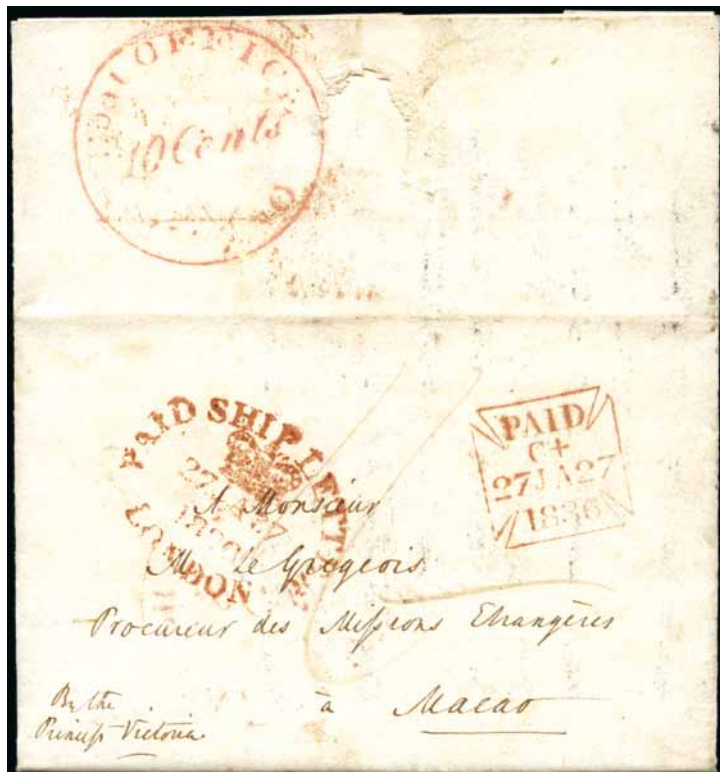 OFFICE
10 Cents
PAID SHIP LETTER
27 JA 27
1836
LONDON
PAID
27 JA 27
1836
A Monsieur
M Le Gregeois
Procureur des Missions Etrangères
à Macao
By the
Princess Victoria